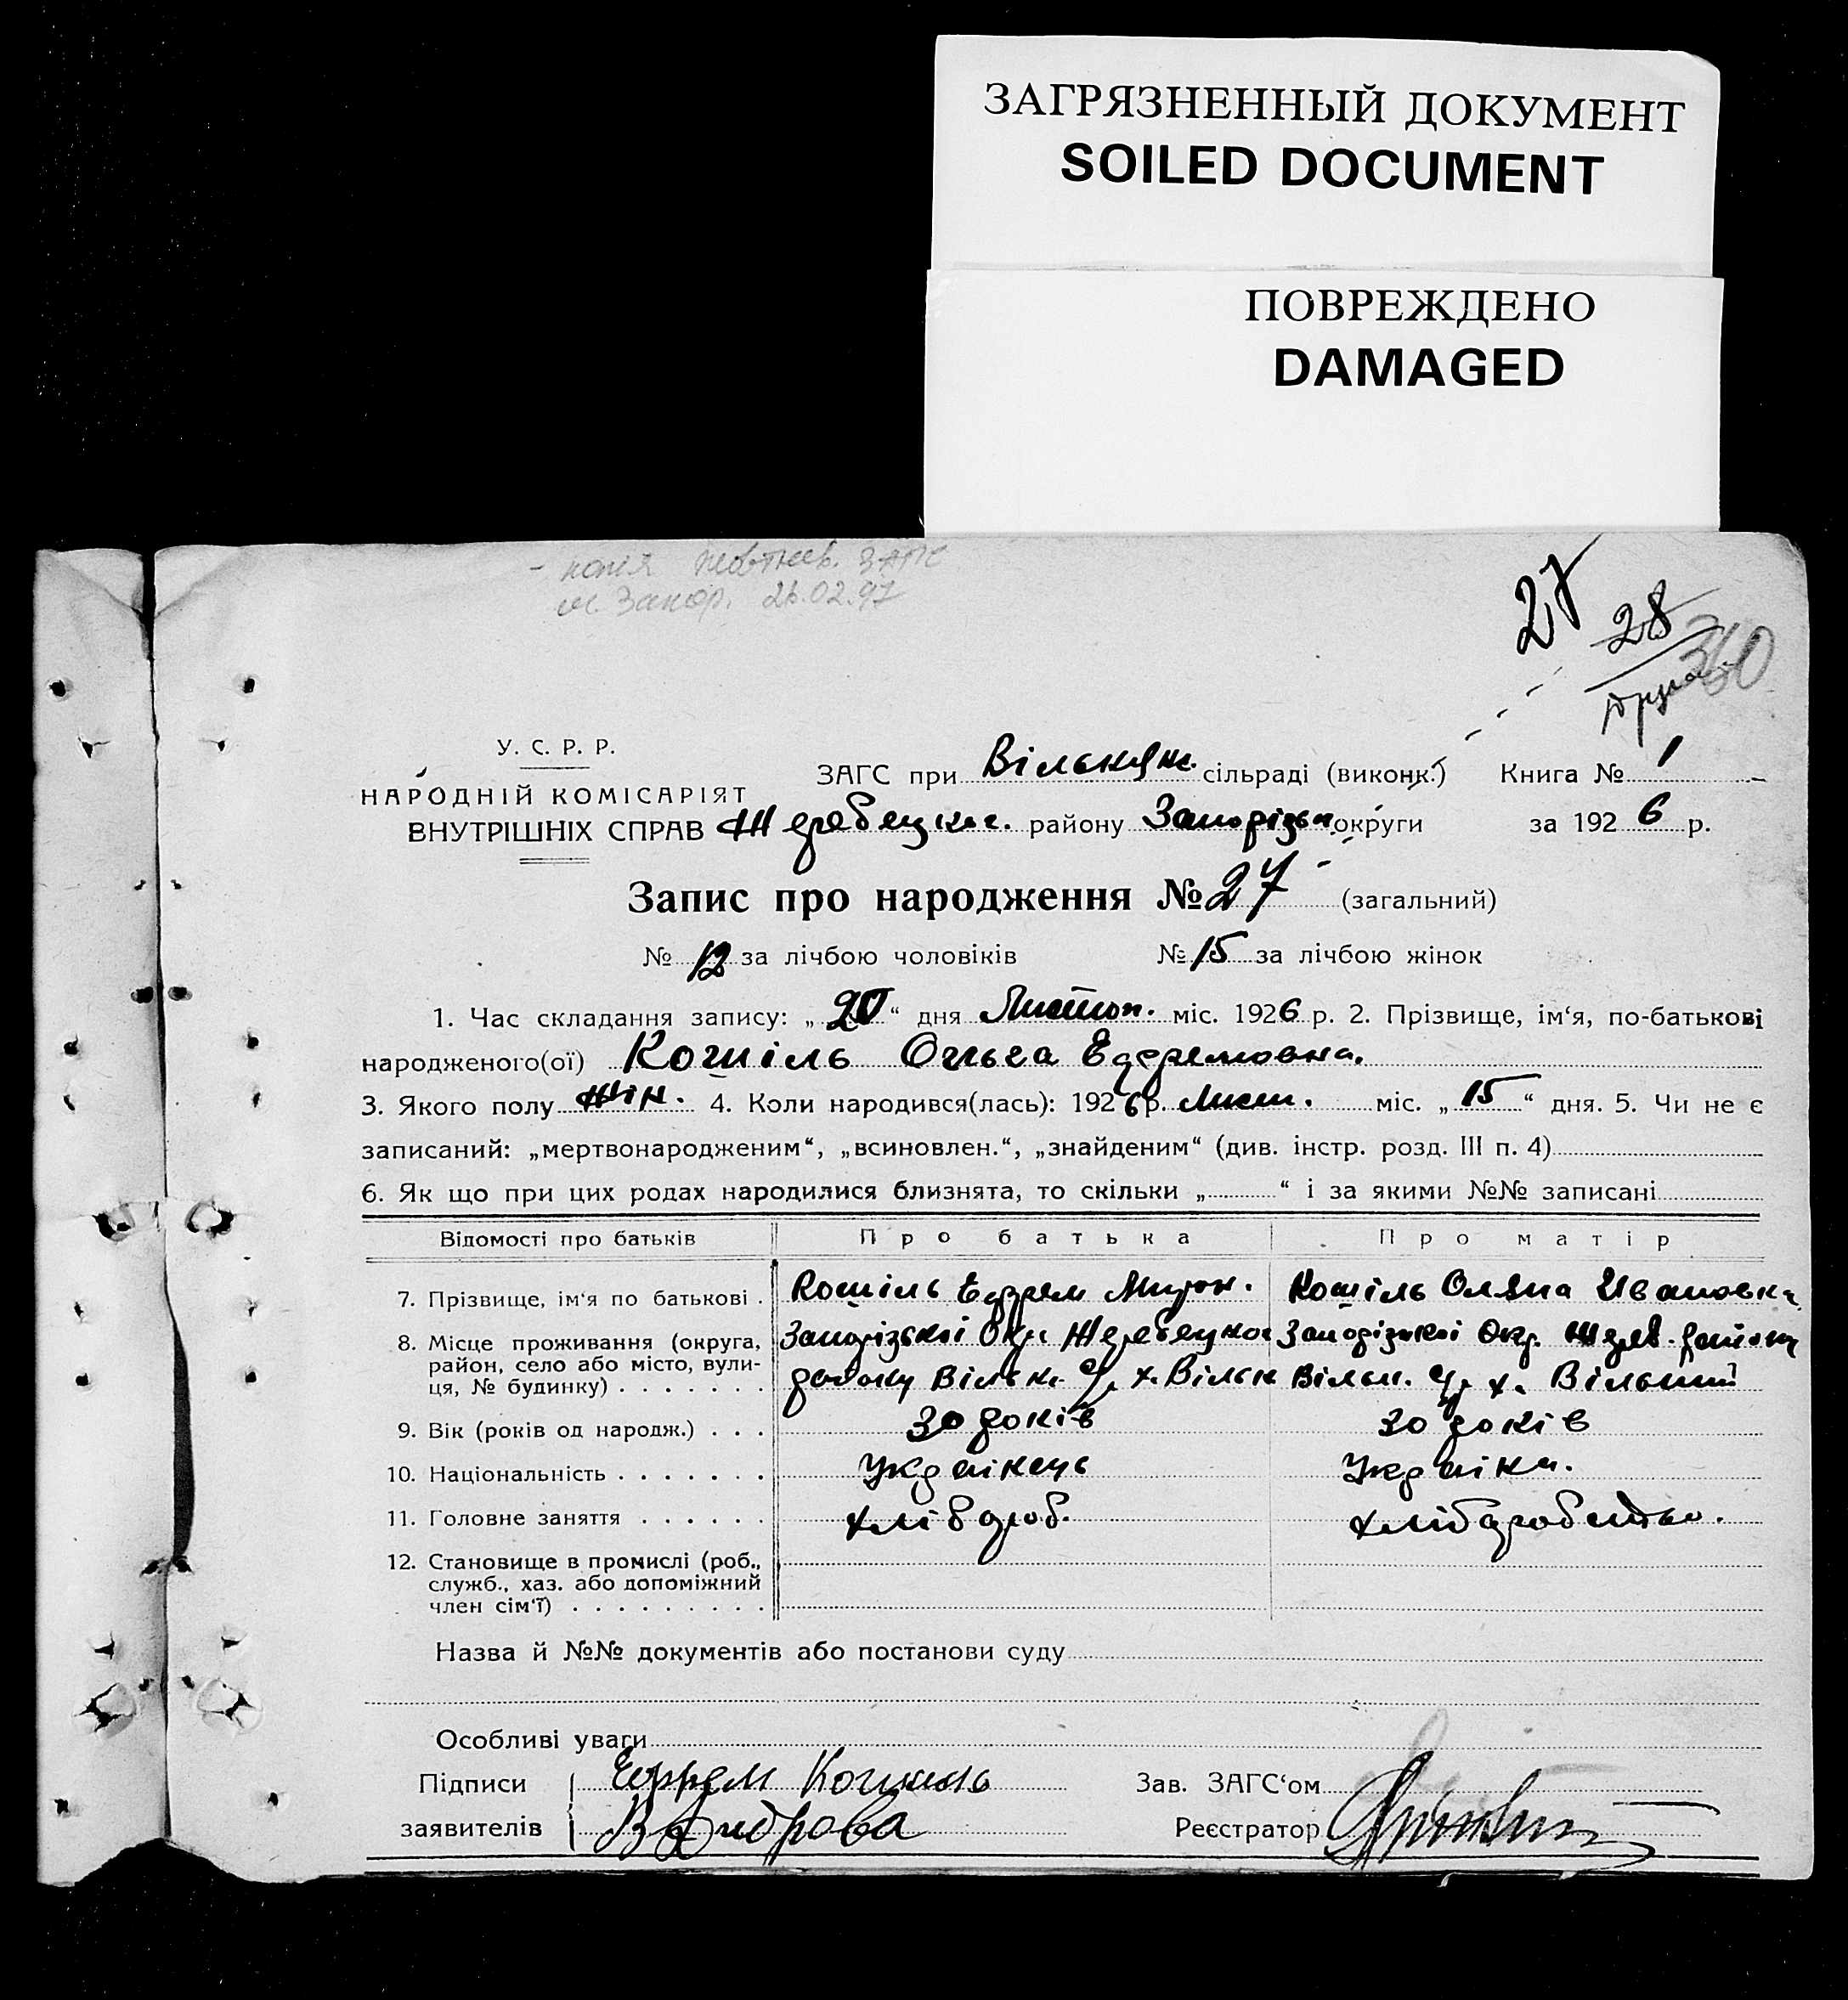 ЗАГРЯЗНЕННЫЙ ДОКУМЕНТ
SOILED DOCUMENT
ПОВРЕЖДЕНО
DAMAGED
- копія Жовтнев. ЗАГС
м. Запор. 26.02.97
27
28
360
У. С. Р. Р.
НАРОДНІЙ КОМІСАРІЯТ
ВНУТРІШНІХ СПРАВ
ЗАГС при Вільнянс. сільраді (виконк.) Книга № 1
Жеребецког. району Запорізьк. округи за 1926 р.
Запис про народження № 27 (загальний)
№ 12 за лічбою чоловіків № 15 за лічбою жінок
1. Час складання запису: „20“ дня Листоп. міс. 1926 р. 2. Прізвище, ім‘я, по-батькові
народженого(ої) Кошіль Ольга Ефремовна.
3. Якого полу жін. 4. Коли народився(лась): 1926 р. Лист. міс. „15“ дня. 5. Чи не є
записаний: „мертвонародженим“, „всиновлен.“, „знайденим“ (див. інстр. розд. III п. 4)
6. Як що при цих родах народилися близнята, то скільки „ “ і за якими №№ записані
Відомості про батьків Про батька Про матір
7. Прізвище, ім‘я по батькові . Кошіль Ефрем Мирон. Кошіль Оляна Ивановна
8. Місце проживання (округа, Запорізької Окр. Жеребецког Запорізької Окр. Жереб. району
район, село або місто, вули-
ця, № будинку) . . . . . . . району Вільн. с/р х. Вільн Вільн. с/р х. Вільний
9. Вік (років од народж.) . . . 30 років 30 років
10. Національність . . . . . . . Українець Українк.
11. Головне заняття . . . . . . хлібороб. хліборобство.
12. Становище в промислі (роб.,
служб., хаз. або допоміжний
член сім‘ї) . . . . . . . . .
Назва й №№ документів або постанови суду
Особливі уваги
Підписи Ефрем Кошиль Зав. ЗАГС‘ом
заявителів Реєстратор